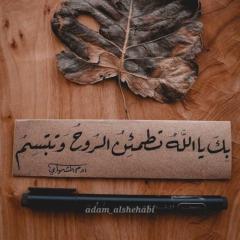 بِكَ يا اللَّهُ تطمئِنُ الرّوحُ وَتبتَسِمُ
adam_alshehabi